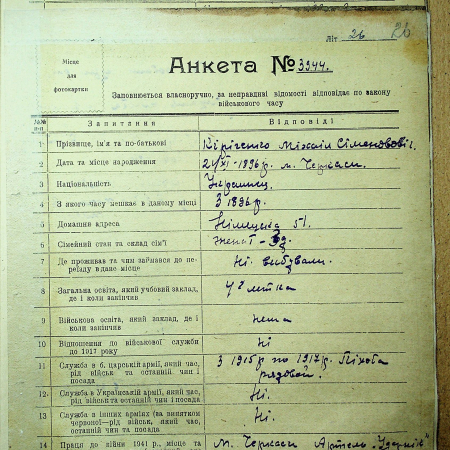 Літ 26 26
Місце
для
фотокартки
Анкета № 3944.
Заповнюється власноручно, за неправдиві відомості відповідає по закону
військового часу
№№
п-п
Запитання
Відповіді
1 Прізвище, ім'я та по-батькові
Міхаіл Сіменовові
2 Дата та місце народження
1896р. м. Черкаси.
3 Національність
4 З якого часу мешкає в даному місці
З 1896р.
5 Домашня адреса
Німецька 51.
6 Сімейний стан та склад сім'ї
7 Де проживав та чим займався до пе-
реїзду в дане місце
Ні вибували.
8 Загальна освіта, який учбовий заклад,
де і коли закінчив
9 Військова освіта, який заклад, де і
коли закінчив
нема
10 Відношення до військової служби
до 1917 року
ні
11 Служба в б. царській армії, який час,
рід військ та останній чин і
посада
З 1915р по 1917р. Піхота
рядовой.
12 Служба в Українській армії, який час,
рід військ та останній чин і посада
Ні.
13 Служба в інших арміях (за винятком
червоної—рід військ, який час,
останній чин та посада
Ні.
14 Праця до війни 1941 р., місце та
м. Черкаси Артель „Ударник"